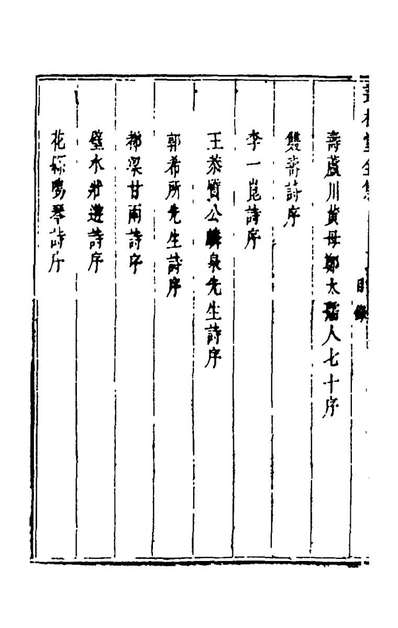 堂全集
目錄
壽蘆川黃母鄭太孺人七十序
雙壽詩序
李一崑詩序
王恭質公麟泉先生詩序
郭希所先生詩序
都梁甘雨詩序
璧水壯遊詩序
花縣鳴琴詩序